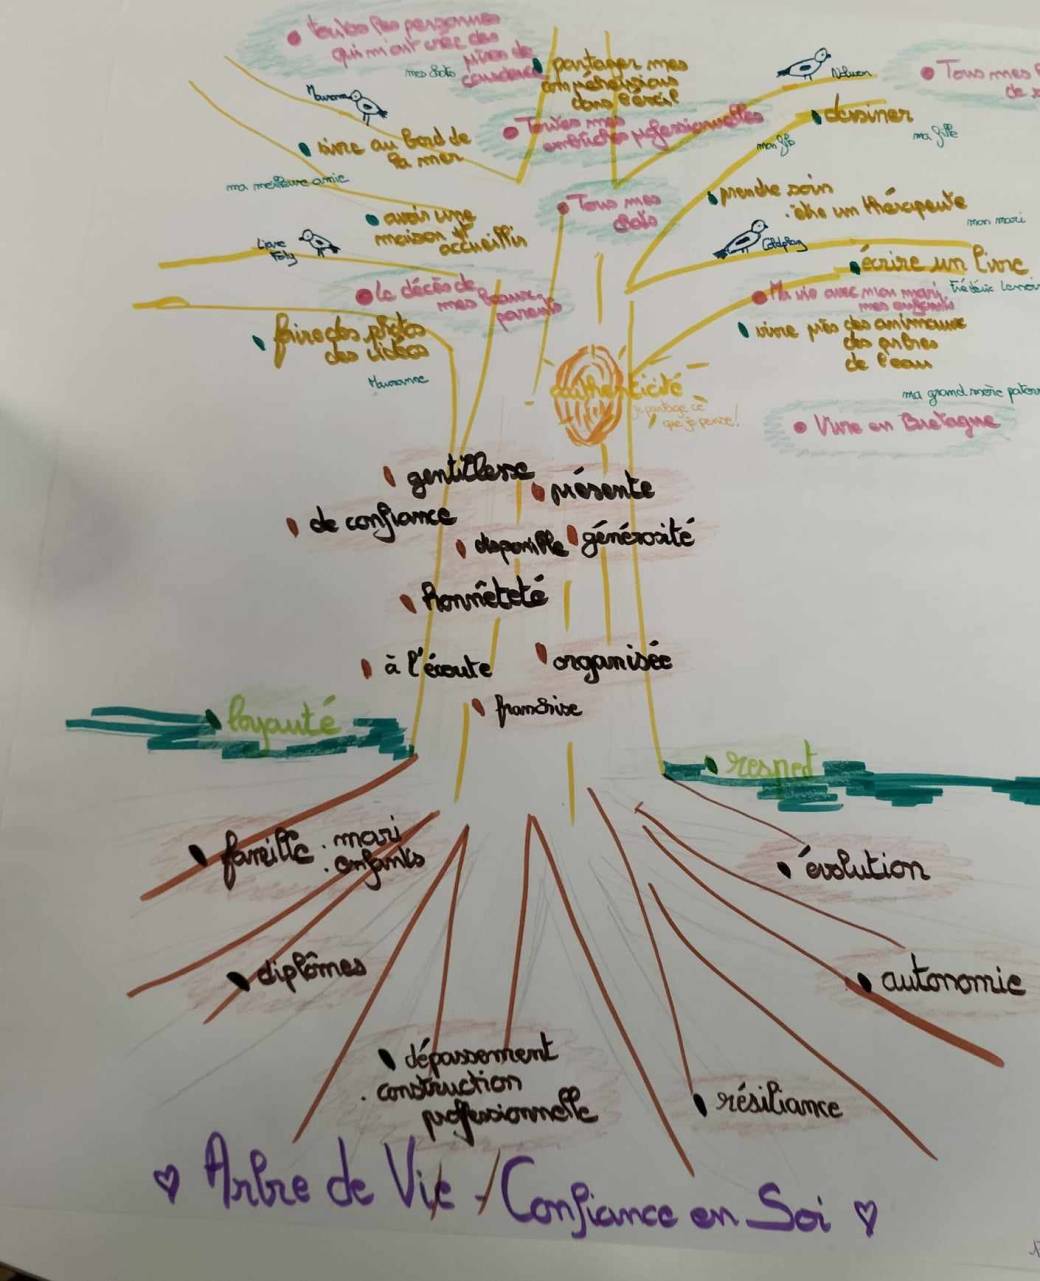 toutes les personnes
qui m'ont avec des
prises de
conscience
mes chats
partager mes
compréhensions
dans l'écrit
Toutes mes
professionnelles
Tous mes
de
dessiner
ma fille
mon fils
vivre au bord de
la mer
ma meilleure amie
prendre soin
être un thérapeute
mon mari
Tous mes
chats
avoir une
maison et
accueillir
Liane
Foly
Coldplay
écrire un livre
Frédéric Lenoir
Le décès de
mes beaux-
parents
Ma vie avec mon mari
mes enfants
faire des photos
des vidéos
vivre près des animaux
des arbres
de l'eau
authenticité
je partage ce
que je pense!
ma grand mère pater
Vivre en Bretagne
gentillesse
présente
de confiance
disponible
générosité
honnêteté
à l'écoute
organisée
franchise
loyauté
respect
famille . mari
. enfants
évolution
diplômes
autonomie
dépassement
. construction
professionnelle
résiliance
Arbre de Vie / Confiance en Soi